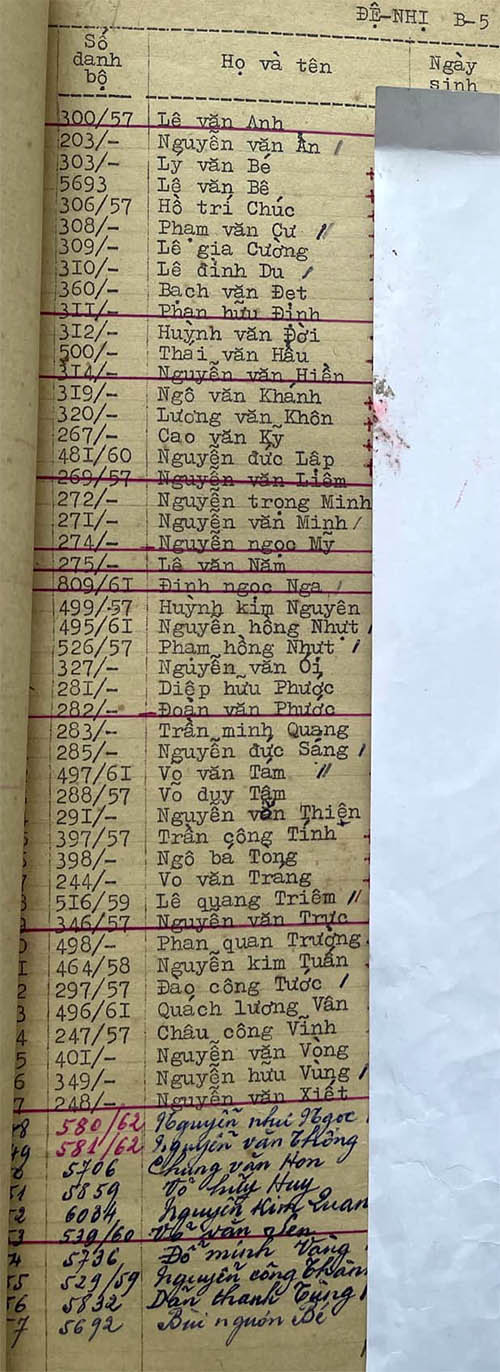 ĐỆ-NHỊ B-5
Số danh bộ Họ và tên Ngày sinh
300/57 Lê văn Anh
203/- Nguyễn văn Ẩn
303/- Lý văn Bé
5693 Lê văn Bê
306/57 Hồ trí Chúc
308/- Phạm văn Cự
309/- Lê gia Cường
310/- Lê đình Du
360/- Bạch văn Đẹt
311/- Phan hữu Định
312/- Huỳnh văn Đời
500/- Thái văn Hậu
314/- Nguyễn văn Hiền
319/- Ngô văn Khánh
320/- Lương văn Khôn
267/- Cao văn Kỹ
481/60 Nguyễn đức Lập
269/57 Nguyễn văn Liêm
272/- Nguyễn trọng Minh
271/- Nguyễn văn Minh
274/- Nguyễn ngọc Mỹ
275/- Lê văn Năm
809/61 Đinh ngọc Nga
499/57 Huỳnh kim Nguyên
495/61 Nguyễn hồng Nhựt
526/57 Phạm hồng Nhựt
327/- Nguyễn văn Ối
281/- Diệp hữu Phước
282/- Đoàn văn Phước
283/- Trần minh Quang
285/- Nguyễn đức Sáng
497/61 Võ văn Tám
288/57 Võ duy Tâm
291/- Nguyễn văn Thiện
397/57 Trần công Tính
398/- Ngô bá Tòng
244/- Vo văn Trang
8 516/59 Lê quang Triêm
9 346/57 Nguyễn văn Trực
0 498/- Phan quan Trường
1 464/58 Nguyễn kim Tuấn
2 297/57 Đào công Tước
3 496/61 Quách lương Vân
4 247/57 Châu công Vĩnh
5 401/- Nguyễn văn Vòng
6 349/- Nguyễn hữu Vùng
7 248/- Nguyễn văn Xiết
48 580/62 Nguyễn như Ngọc
49 581/62 Nguyễn văn Thông
5706 Chung văn Hon
51 5859 Võ Huy
52 6034 Nguyễn Kim Quan
53 539/60 Võ văn Sen
54 5736 Đỗ minh Vàng
55 529/59 Nguyễn công Thàn
56 5832 thanh Tùng
57 5692 Bùi nguơn Bé